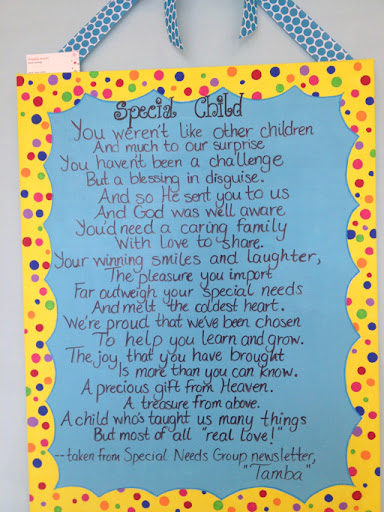 Special Child
You weren't like other children
And much to our surprise
You haven't been a challenge
But a blessing in disguise.
And so He sent you to us
And God was well aware
You'd need a caring family
With love to share.
Your winning smiles and laughter,
The pleasure you import
Far outweigh your special needs
And melt the coldest heart.
We're proud that we've been chosen
To help you learn and grow.
The joy that you have brought
Is more than you can know.
A precious gift from Heaven.
A treasure from above.
A child who's taught us many things
But most of all "real love!"
--taken from Special Needs Group newsletter,
"Tamba"